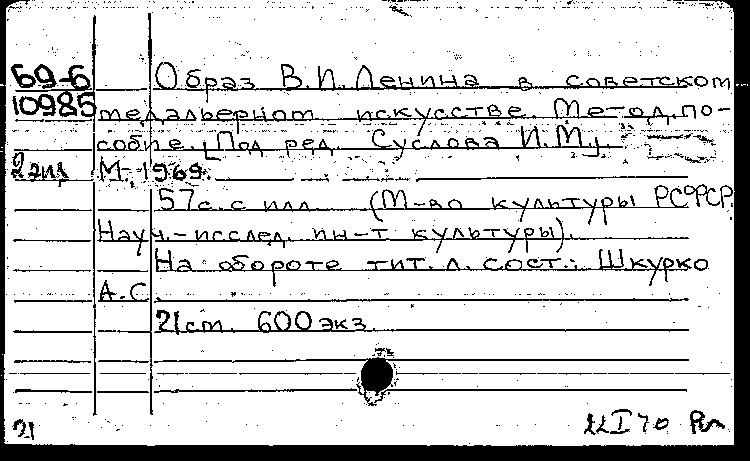 69-6 Образ В.И. Ленина в советском
10985 медальерном искусстве. Метод. по-
собие. [Под ред. Суслова И.М].
2 экз М. 1969.
57с. с илл. (М-во культуры РСФСР.
Науч.-исслед. ин-т культуры).
На обороте тит. л. сост.: Шкурко
А.С.
21 ст. 600 экз.
21 22 I 70